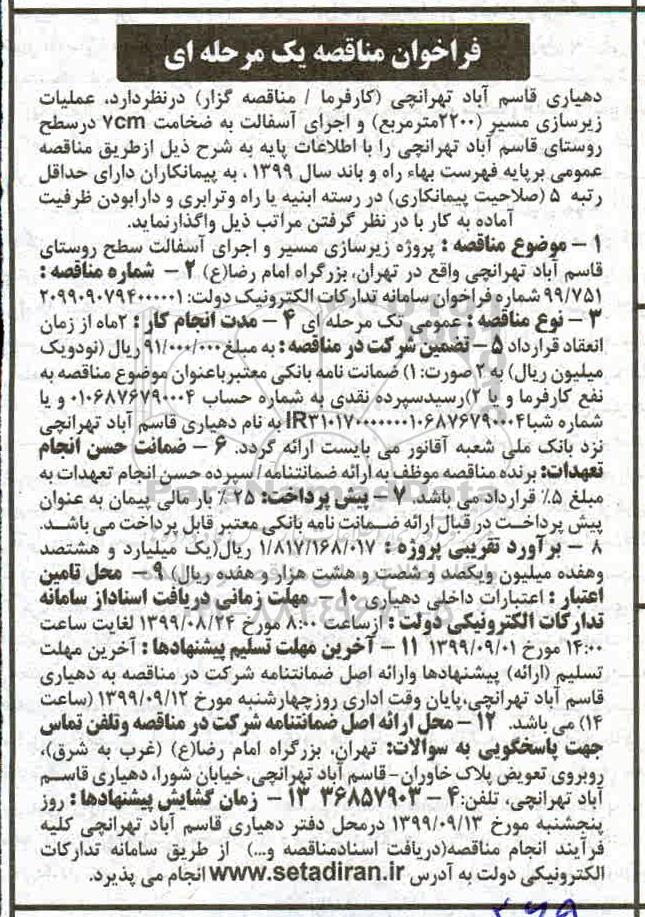 فراخوان مناقصه یک مرحله ای
دهیاری قاسم آباد تهرانچی (کارفرما / مناقصه گزار) درنظردارد، عملیات
زیرسازی مسیر (۲۲۰۰مترمربع) و اجرای آسفالت به ضخامت ۷cm درسطح
روستای قاسم آباد تهرانچی را با اطلاعات پایه به شرح ذیل ازطریق مناقصه
عمومی برپایه فهرست بهاء راه و باند سال ۱۳۹۹ ، به پیمانکاران دارای حداقل
رتبه ۵ (صلاحیت پیمانکاری) در رسته ابنیه یا راه وترابری و دارابودن ظرفیت
آماده به کار با در نظر گرفتن مراتب ذیل واگذارنماید.
۱ – موضوع مناقصه : پروژه زیرسازی مسیر و اجرای آسفالت سطح روستای
قاسم آباد تهرانچی واقع در تهران، بزرگراه امام رضا(ع) ۲ – شماره مناقصه :
۹۹/۷۵۱ شماره فراخوان سامانه تدارکات الکترونیک دولت: ۲۰۹۹۰۹۰۷۹۴۰۰۰۰۰۱
۳ – نوع مناقصه : عمومی تک مرحله ای ۴ – مدت انجام کار : ۲ماه از زمان
انعقاد قرارداد ۵ – تضمین شرکت در مناقصه : به مبلغ ۹۱/۰۰۰/۰۰۰ ریال (نودویک
میلیون ریال) به ۲ صورت: ۱) ضمانت نامه بانکی معتبرباعنوان موضوع مناقصه به
نفع کارفرما و یا ۲)رسیدسپرده نقدی به شماره حساب ۰۱۰۶۸۷۶۷۹۰۰۰۴ و یا
شماره شبا IR۳۱۰۱۷۰۰۰۰۰۰۰۱۰۶۸۷۶۷۹۰۰۰۴ به نام دهیاری قاسم آباد تهرانچی
نزد بانک ملی شعبه آقانور می بایست ارائه گردد. ۶ – ضمانت حسن انجام
تعهدات: برنده مناقصه موظف به ارائه ضمانتنامه/ سپرده حسن انجام تعهدات به
مبلغ ۵٪ قرارداد می باشد. ۷ – پیش پرداخت: ۲۵ ٪ بار مالی پیمان به عنوان
پیش پرداخت در قبال ارائه ضمانت نامه بانکی معتبر قابل پرداخت می باشد.
۸ – برآورد تقریبی پروژه : ۱/۸۱۷/۱۶۸/۰۱۷ ریال(یک میلیارد و هشتصد
وهفده میلیون ویکصد و شصت و هشت هزار و هفده ریال) ۹ – محل تامین
اعتبار : اعتبارات داخلی دهیاری ۱۰ – مهلت زمانی دریافت اسناداز سامانه
تدارکات الکترونیکی دولت : ازساعت ۸:۰۰ مورخ ۱۳۹۹/۰۸/۲۴ لغایت ساعت
۱۴:۰۰ مورخ ۱۳۹۹/۰۹/۰۱ ۱۱ – آخرین مهلت تسلیم پیشنهادها : آخرین مهلت
تسلیم (ارائه) پیشنهادها وارائه اصل ضمانتنامه شرکت در مناقصه به دهیاری
قاسم آباد تهرانچی،پایان وقت اداری روزچهارشنبه مورخ ۱۳۹۹/۰۹/۱۲ (ساعت
۱۴) می باشد. ۱۲ – محل ارائه اصل ضمانتنامه شرکت در مناقصه وتلفن تماس
جهت پاسخگویی به سوالات: تهران، بزرگراه امام رضا(ع) (غرب به شرق)،
روبروی تعویض پلاک خاوران- قاسم آباد تهرانچی،خیابان شورا، دهیاری قاسم
آباد تهرانچی، تلفن:۴ – ۳۶۸۵۷۹۰۳ ۱۳ – زمان گشایش پیشنهادها : روز
پنجشنبه مورخ ۱۳۹۹/۰۹/۱۳ درمحل دفتر دهیاری قاسم آباد تهرانچی کلیه
فرآیند انجام مناقصه(دریافت اسنادمناقصه و...) از طریق سامانه تدارکات
الکترونیکی دولت به آدرس www.setadiran.ir انجام می پذیرد.